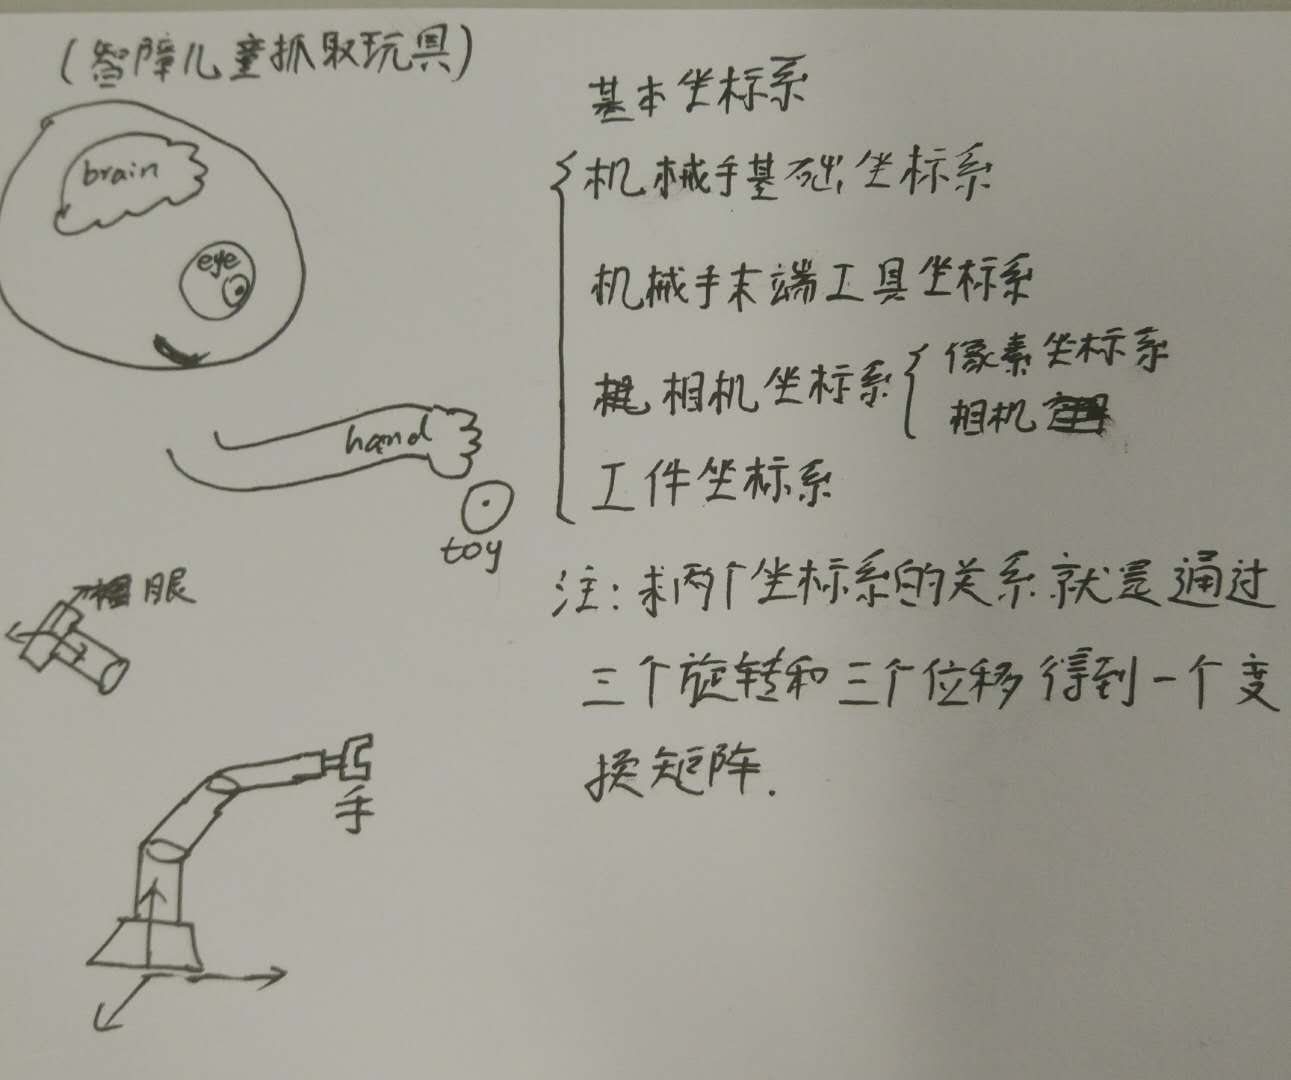 (智障儿童抓取玩具)
brain
eye
hand
toy
眼
手
基本坐标系
机械手基础坐标系
机械手末端工具坐标系
相机坐标系
像素坐标系
相机
工件坐标系
注：求两个坐标系的关系就是通过
三个旋转和三个位移得到一个变
换矩阵.